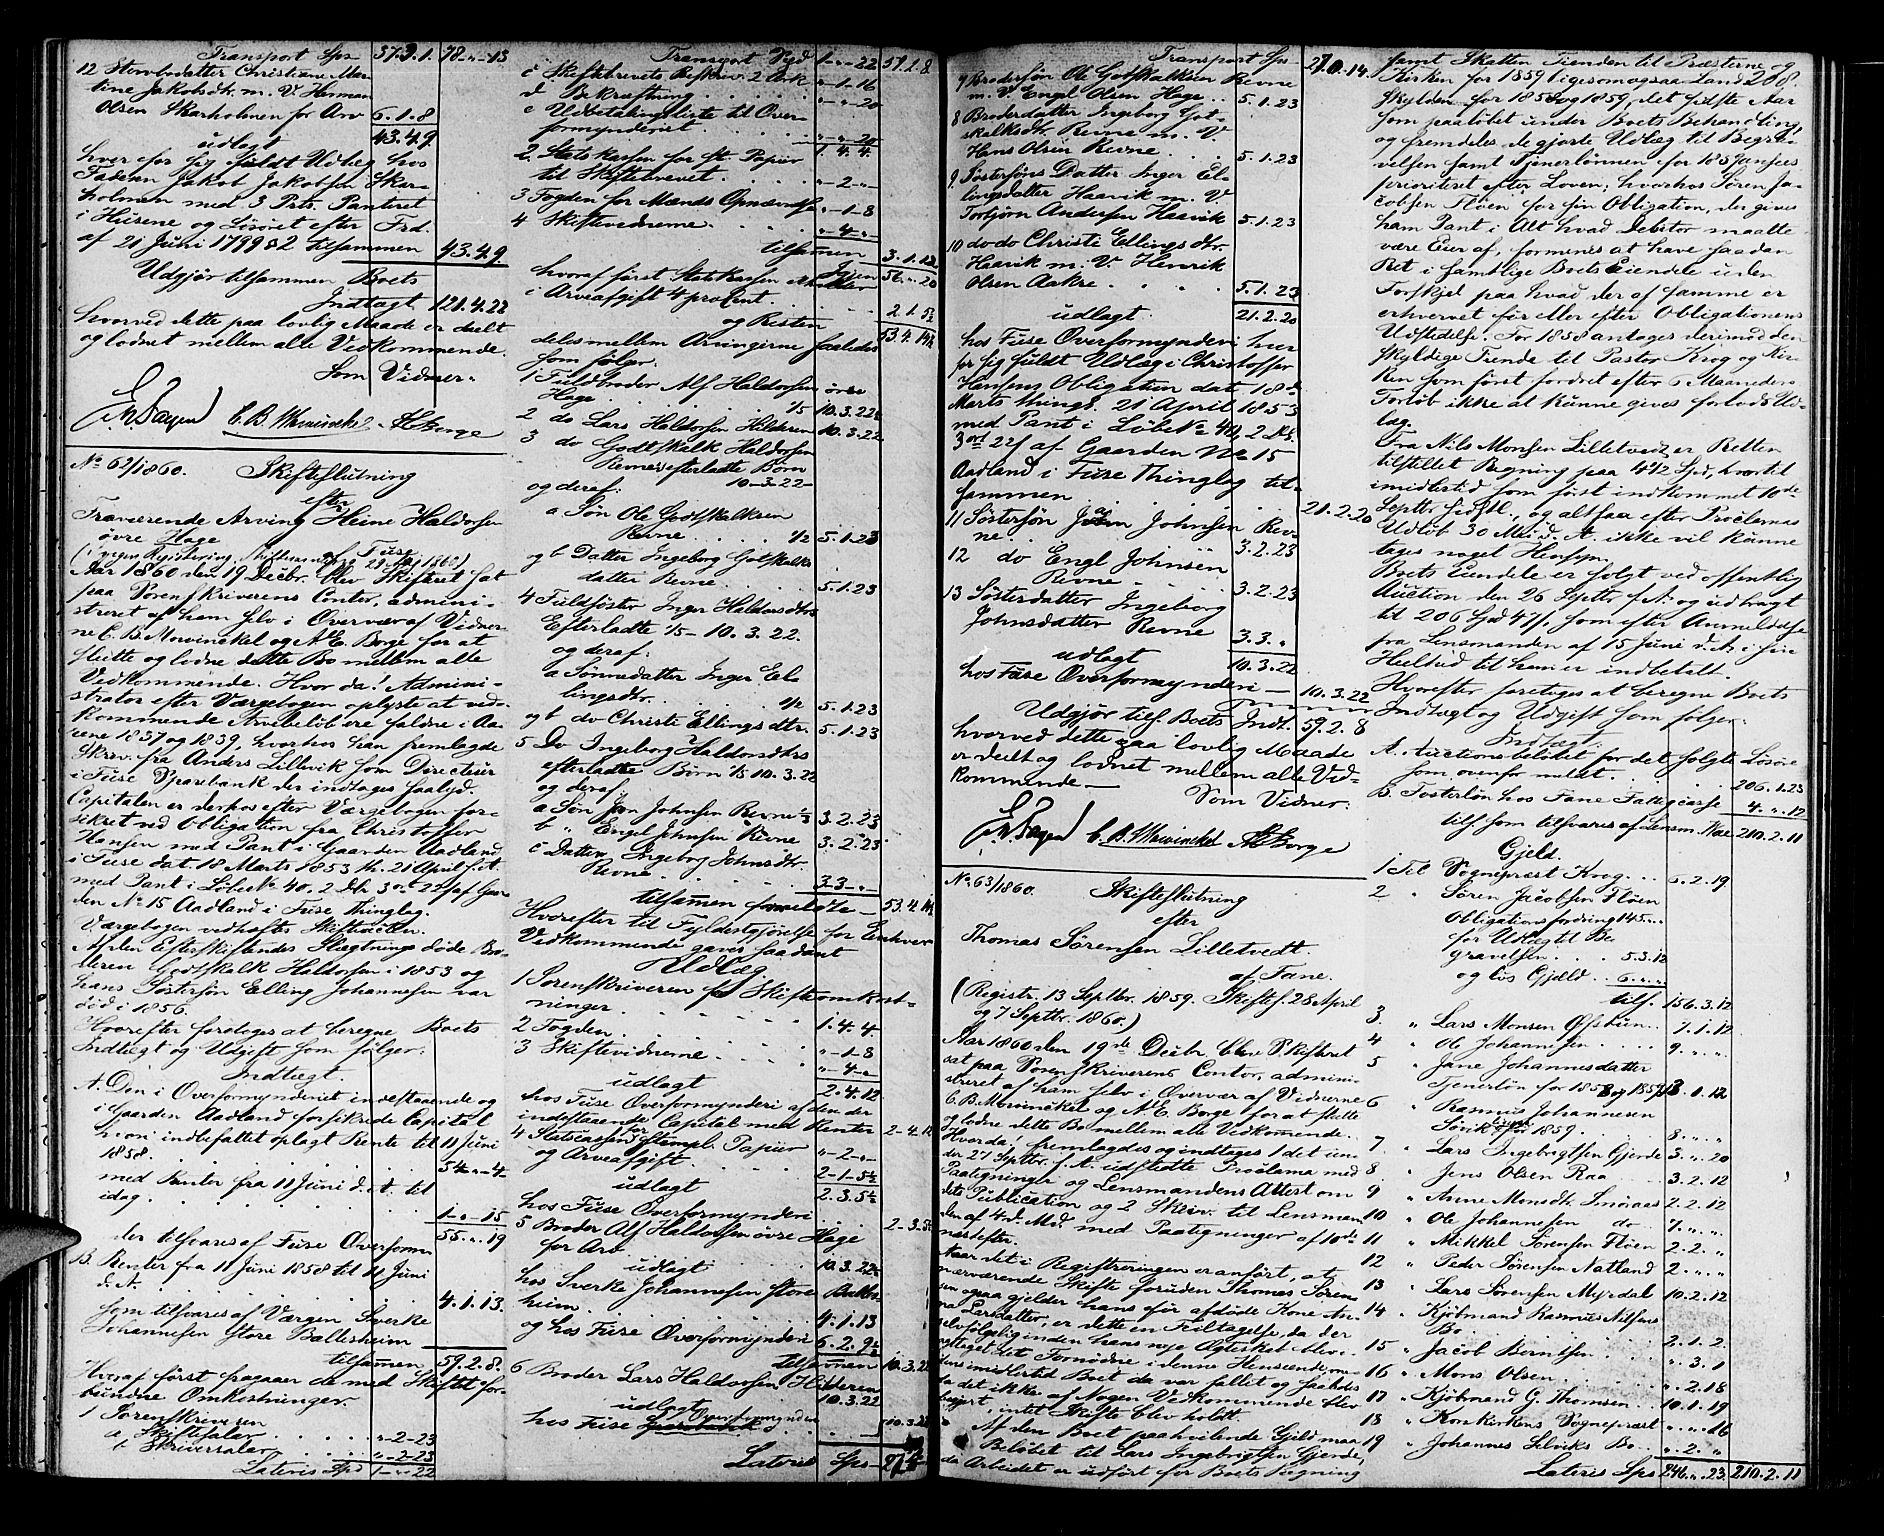 Transport Sps 37.3.1. 78-"-13
12 Stervbodatter Christiane Mar-
tine Jakobsdtr. m. V. Herman
Olsen Skarholmen for Arv 6.1.8
udlagt 43.4.9
hver for sig fuldt Udlæg hos
Faderen Jakob Jakobsen Skar-
holmen med 3 Prts. Panteret
i Husene og Løsøret efter Frd.
af 21 Juni 1799 § 2 tilsammen 43.4.9
Udgjør tilsammen Boets
Indtægt 121.4.22
hvorved dette paa lovlig Maade er deelt
og lodnet mellem alle Vedkommende.
Som Vidner:
C. B. Mowinckel AE Borge
No 62/1860. Skifteslutning
efter
Fraværende Arving Heine Haldorsen
øvre Hage
af Fuse
Aar 1860 den 19 Decbr. blev Skifteret sat
paa Sorenskriverens Contor, admini-
streret af ham selv i Overvær af Vidner-
ne C. B. Mowinckel og A. E. Borge for at
slutte og lodne dette Bo mellem alle
Vedkommende. Hvor da! Admini-
strator efter Værgebogen oplyste at ved-
kommende Arvebeløb ere faldne i Aa-
rene 1837 og 1839, hvorhos han fremlagde
Skriv. fra Anders Lillevik som Directeur
i Fuse Sparebank der indtages saalyd.
Capitalen er derhos efter Værgebogen for-
sikret ved Obligation fra Christoffer
Hansen med Pant i Gaarden Aadland
i Fuse dat. 18 Marts 1853 th. 21 April s. A.
med Pant i Løbe No. 40. 2 Dlr. 3 ort 22 s af Gaar-
den No 15 Aadland i Fuse Thinglag.
Værgebogen vedhæftes Skifteacten.
Af den Efterskiftendes Slægtninge døde Bro-
deren Godtskalk Haldorsen i 1853 og
hans Søstersøn Elling Johannesen var
død i 1856.
Hvorefter foretoges at beregne Boets
Indtægt og Udgift som følger:
Indtægt.
A. Den i Overformynderiet indestaaende og
i Gaarden Aadland forsikrede Capital
hvori indbefattet oplagt Rente til 11 Juni
1858. 54-"-4-
med Renter fra 11 Juni d. A. til
idag. 1-"-15
der tilsvares af Fuse Overform. 55.".19
B. Renter fra 11 Juni 1858 til 11 Juni
d. A. 4.1.13.
som tilsvares af Værgen Sverke
Johannesen store Ballesheim
tilsamen 59.2.8.
Hvoraf først fragaaer de med Skiftet for-
bundne Omkostninger.
1 Sorenskriveren
a Skiftesaler "-2-23
b Skriversaler "-2-23
Lateris Spd 1-"-22
Transport Spd 1-"-22 59.2.8
c Skiftebrevets Beskriv. 2 Ark "-1-16
d Bekræftning "-"-20
e Udbetalingsliste til Over-
formynderiet. "-"-20
1.4.4.
2. Statskassen for st. Papiir
til Skiftebrevet. "-2-"-
3 Fogden for Mænds Opnævnelse "-1-8
4 Skiftevidnerne "-4-"-
tilsamen 3.1.12
Igjen 56.".20
hvoraf først Statskassen erholder
i Arveafgift 4 procent. 2.1.5½
og Resten 53.4.14½
deles mellem Arvingerne saaledes
som følger.
1 Fuldbroder Alf Haldorsen øvre
Hage 1/5 10.3.22½
2 do Lars Haldorsen Hilderen 10.3.22
3 do Godtskalk Haldorsen
Revnes efterladte Børn
10-3.22-
og deraf:
a Søn Ole Godtskalksen
Revne ½ 5.1.23
og b Datter Ingeborg Gotskalks
datter Revne 5.1.23
4 Fuldsøster Inger Haldorsdtrs
Efterladte 1/5 - 10.3.22.
og deraf:
a Sønnedatter Inger El-
lingsdtr. ½ 5.1.23
og b do Christi Ellings dtr. 5.1.23
5 Do Ingeborg Haldorsdtrs
efterladte Børn 1/5 10.3.22
og deraf:
a Søn Jon Johnsen Revne ⅓ 3.2.23
b " Engel Johnsen Revne 3.2.23
c Datter Ingeborg Johnsdtr.
Revne. 3.3-"-
tilsamen formeldte- 53.4.14½
Hvorefter til Fyldestgjørelse for Enhver
Vedkommende gaves saadant
Udlæg
1 Sorenskriveren for Skifteomkost-
ninger. 1.4.4.
2 Fogden "-1-8
3 Skiftevidnerne "-4-"
udlagt 2.4.12
hos Fuse Overformynderi af den der
indestaaende Capital med Renter 2-4.12
4 Statscassen for stempl. Papiir "-2-"-
og Arveafgift. 2-1-5½
udlagt 2.3.5½
hos Fuse Overformynderi 2-3.5½
5 Broder Alf Haldorsen øvre Hage
for Arv 10.3.22½
udlagt
hos Sverke Johannesen store Balles-
heim 4.1.13
og hos Fuse Overformynderi 6.2.9½
tilsammen 10.3.22½
6 Broder Lars Haldorsen Hilderen
10.3.22
udlagt
hos Fuse Overformynderi 10.3.22
Lateris Sps
Transport Sps 27.0.14.
7 Brodersøn Ole Gotskalksen Revne
m. V. Engel Olsen Hage 5.1.23
8 Broderdatter Ingeborg Got-
skalksdtr. Revne m. V.
Hans Olsen Revne 5.1.23
9. Søstersøns Datter Inger El-
lingsdatter Haavik m. V.
Torbjørn Andersen Haavik 5.1.23
10 do do Christi Ellings dtr.
Haavik m. V. Henrik
Olsen Aakre. 5.1.23
udlagt: 21.2.20
hos Fuse Overformynderi hver
for sig fuldt Udlæg i Christoffer
Hansens Obligation dat. 18de
Marts thingl. 21 April 1853
med Pant i Løbe No 40, 2 Dlr.
3 ort 22 s af Gaarden No 15
Aadland i Fuse Thinglag til-
sammen 21.2.20
11 Søstersøn Jon Johnsen Rev-
ne. 3.2.23
12 do Engl Johnsen
Revne 3.2.23
13 Søsterdatter Ingeborg
Johnsdatter Revne 3.3."
udlagt 10.3.22
hos Fuse Overformynderi- 10.3.22
Udgjør tils. Boets Indt. 59.2.8
hvorved dette paa lovlig Maade
er deelt og lodnet mellem alle Ved-
kommende-
Som Vidner:
C. B. Mowinckel AE Borge
No. 63/1860. Skifteslutning
efter
Thomas Sørensen Lilletvedt.
af Fane.
(Registr. 13 Septbr. 1859. Skiftes. 28 April
og 7 Septbr. 1860.)
Aar 1860 den 19de Decbr. blev Skifteret
sat paa Sorenskriverens Contor, admini-
streret af ham selv i Overvær af Vidnerne
C. B. Mowinckel og A. E. Borge for at slutte
og lodne dette Bo mellem alle Vedkommende.
Hvorda! fremlagdes og indtages 1 det un-
der 27 Septbr. f. A. udstedte Proclama med
Paategninger og Lensmandens Attest om
dets Publication og 2 Skriv. til Lensman-
den af 4 d. Md. med Paategninger af 10de
næstefter.
Naar det i Registreringen er anført, at
nærværende Skifte foruden Thomas Søren-
sen ogsaa gjelder hans før afdøde Kone An-
na Larsdatter, er dette en Feiltagelse, da der
selvfølgelig inden hans nye Ægteskab blev
iagttaget det Fornødne i denne Henseende, om-
dens imidlertid Boet da var fallit og saaledes
da det ikke af Nogen Vedkommende blev
begjert, intet Skifte blev holdt.
Af den Boet paahvilende Gjeld maa
Beløbet til Lars Ingebrigtsen Gjerde,
da Arbeidet er udført for Boets Regning
samt Skatten Tienden til Præsterne og
Kirken for 1859 ligesom ogsaa Land- 208.
skylden for 1858 og 1859, det sidste Aar
som paaløbet under Boets Behandling,
og fremdeles de gjorte Udlæg til Begra-
velsen samt Tjenerlønnen for 1859 ansees
prioriteret efter Loven; hvorhos Søren Ja-
cobsen Fløen for sin Obligation, der gives
ham Pant i Alt hvad Debitor maatte
være Eier af, formenes at have saadan
Ret i samtlige Boets Eiendele uden
Forskjel paa hvad der af samme er
erhvervet før eller efter Obligationens
Udstedelse. For 1858 antages derimod den
skyldige Tiende til Pastor Krog og Kir-
ken som først fordret efter 6 Maaneders
Forløb ikke at kunne gives forlods Ud-
læg.
Fra Nils Monsen Lilletvedt er Retten
tilstillet Regning paa 4½ Spd, hvortil
imidlertid som først indkommet 10de
Septbr sidstl., og altsaa efter Proclamas
Udløb 30 Mai d. A. ikke vil kunne
tages noget Hensyn.
Boets Eiendele er solgt ved offentlig
Auction den 26 Septbr f. A. og udbragt
til 206 Spd 47 s, som efter Anmeldelse
fra Lensmanden af 15 Juni d. A. i sin
Heelhed til ham er indbetalt.
Hvorefter foretoges at beregne Boets
Indtægt og Udgift som følger:
Indtægt.
A. Auctionsbeløbet for det solgte Løsøre
som ovenfor meldt. 206.1.23
B. Fosterløn hos Fane Fattigcasse 4.".12
tils. som tilsvares af Lensm. Næs 210.2.11
Gjeld.
1 Til Sognepræst Krog 6.2.19
2 " Søren Jacobsen Fløen
Obligationsfordring 145."."
for Udlæg til Be-
gravelsen 5.3.12
og løs Gjeld 6.".
tils. 156.3.12
3. " Lars Monsen Øfsthun 7.1.12
4 " Ole Johannesen 9.".".
5 " Jane Johannesdatter
Tjenerløn for 1858 og 1859 13.1.12
6 " Rasmus Johannesen
Søvik for 1859. 8.".".
7. " Lars Ingebrigtsen Gjerde 3.".20
8. " Jens Olsen Raa 3.2.12
9 " Anne Monsdtr. Smøraas 2.2.12
10 " Ole Johannesen do 7.".".
11 " Mikkel Sørensen Fløen 2.2."
12 " Peder Sørensen Natland 2.".".
13 " Lars Sørensen Myrdal 10.2.12
14 " Kjøbmand Rasmus Nilsens
Bo 2.1.2.
15 " Jacob Berntsen ".3.1
16 " Mons Olsen ".2.18
17 " Kjøbmand G. Thomsen 10.1.19
18 " Korskirkens Sognepræst ".".16
19 " Johannes Lilviks Bo ".2."
Lateris Sps 246.".23. 210.2.11